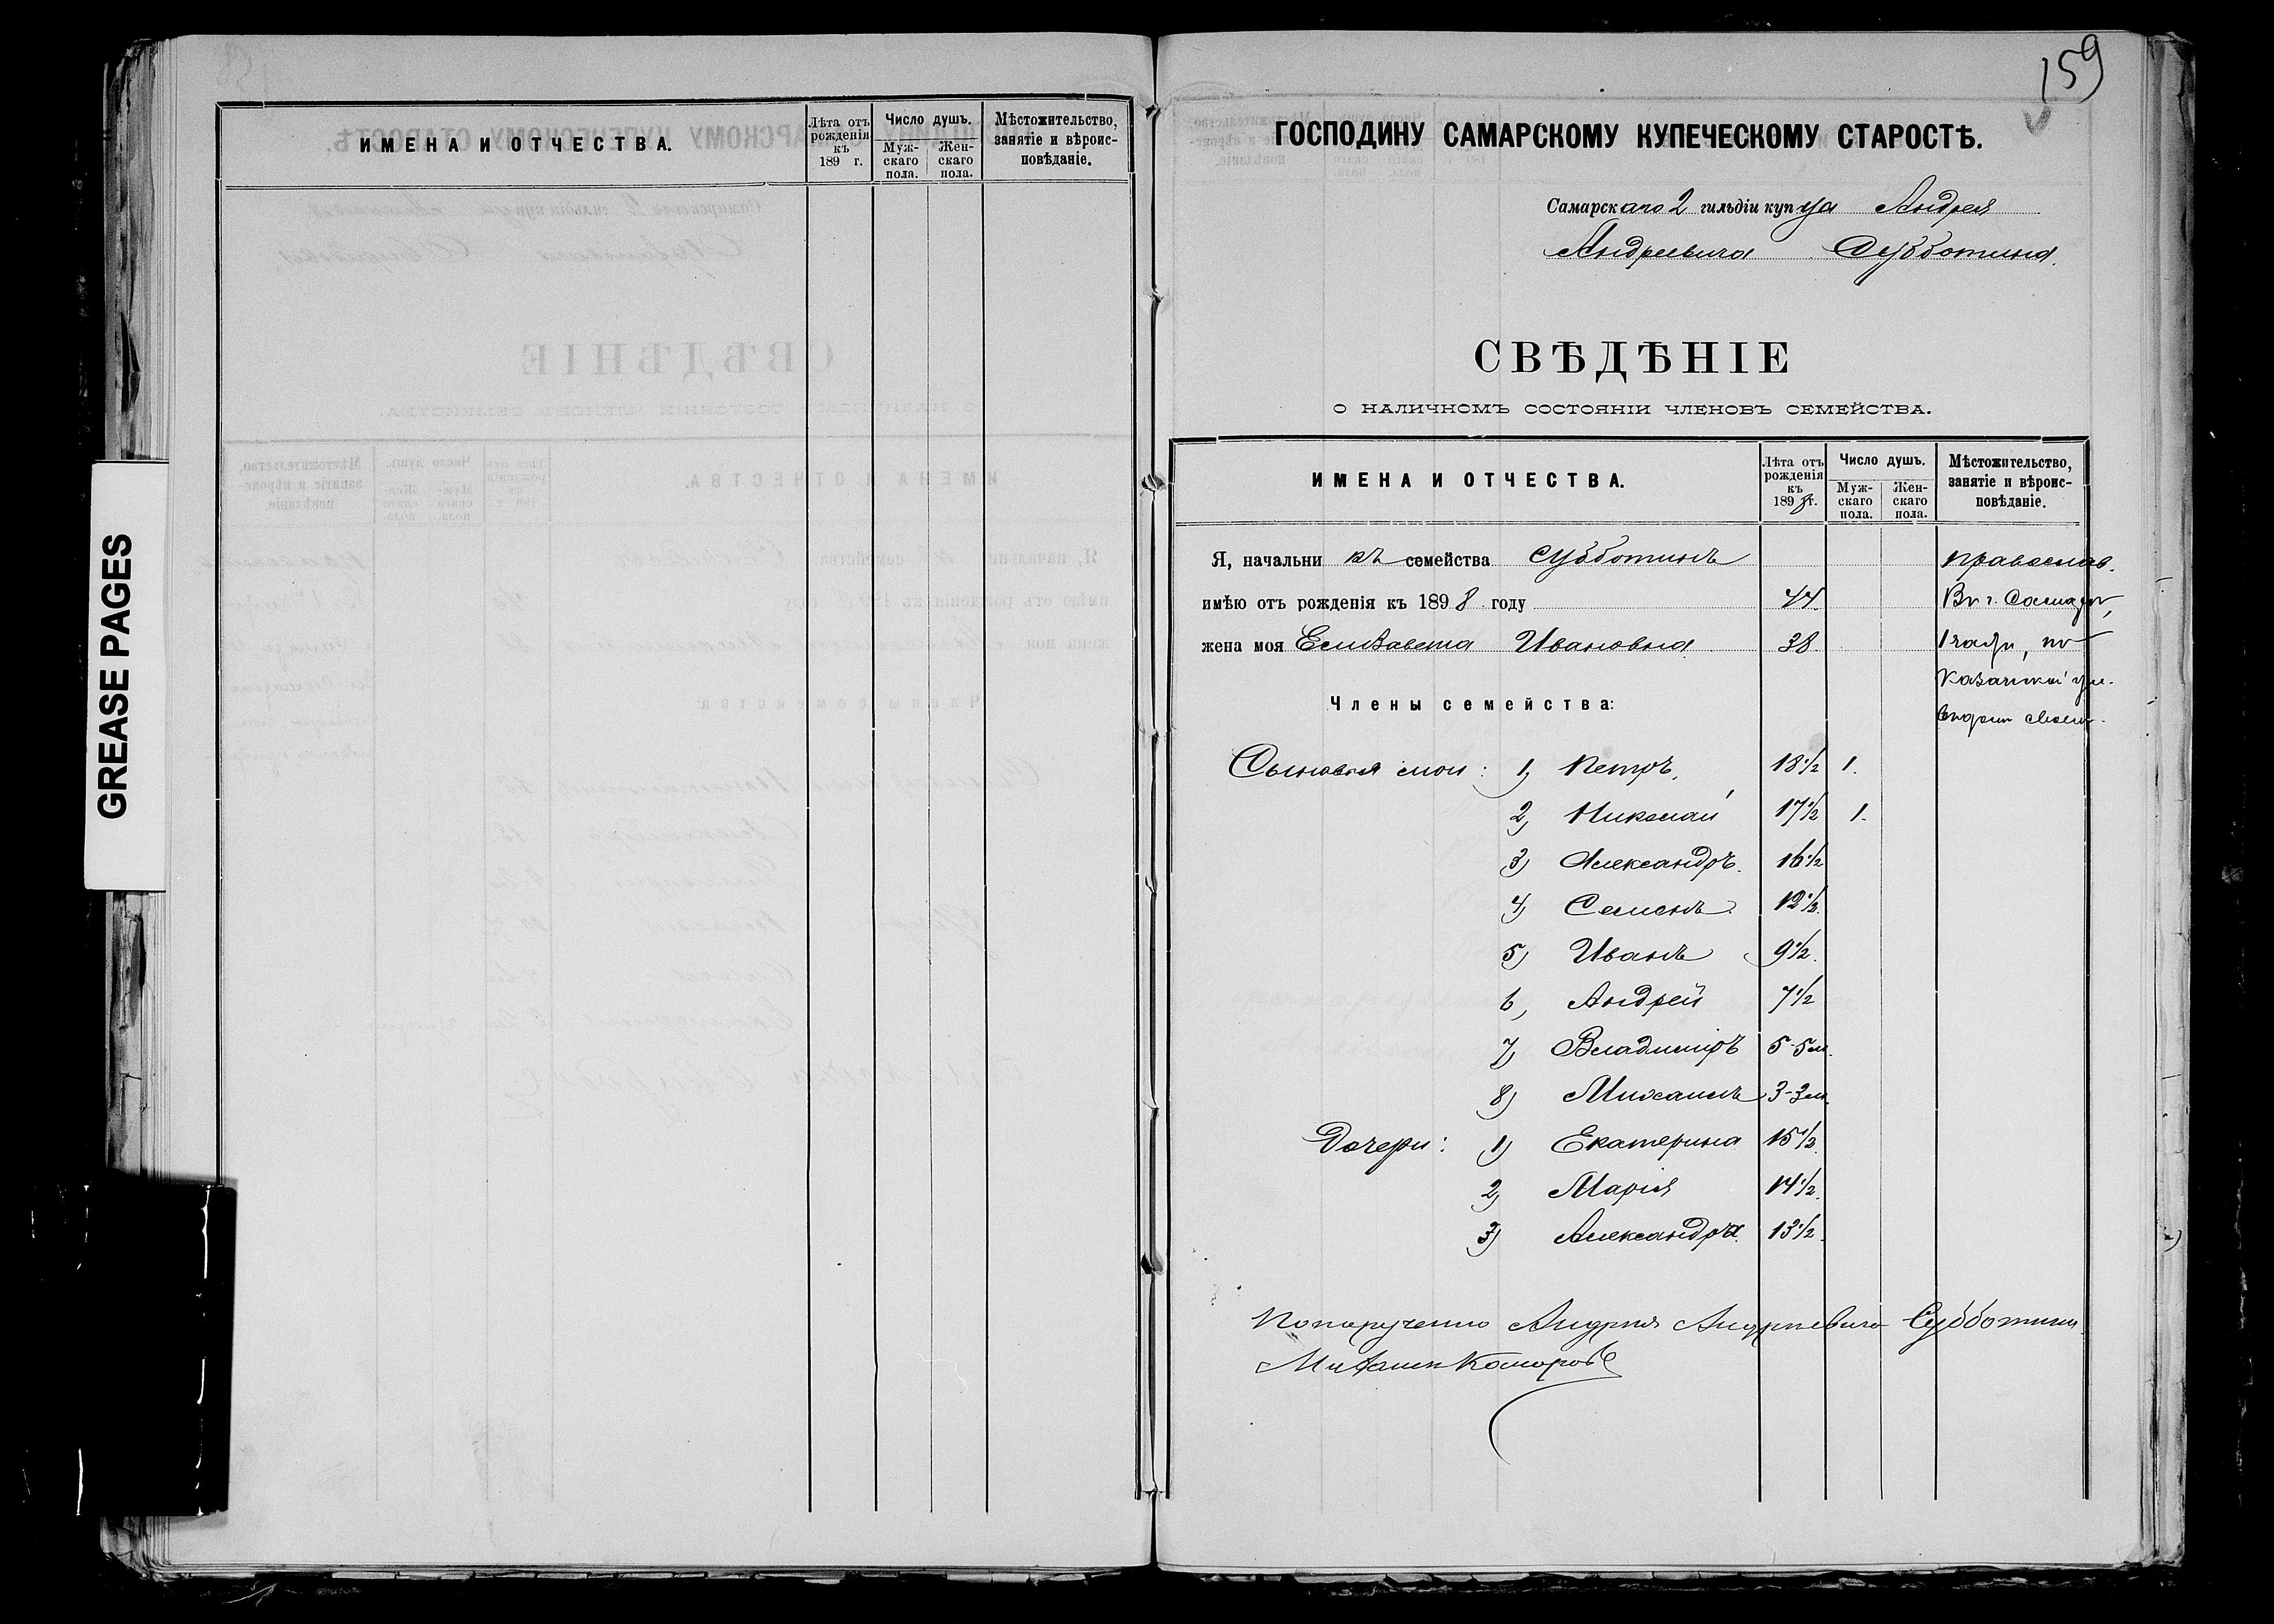 GREASE PAGES
ИМЕНА И ОТЧЕСТВА.
Лѣта отъ рожденія къ 189 г.
Число душъ.
Муж-скаго пола.
Жен-скаго пола.
Мѣстожительство, занятіе и вѣроис-повѣданіе.
159
ГОСПОДИНУ САМАРСКОМУ КУПЕЧЕСКОМУ СТАРОСТѢ.
Самарскаго 2 гильдіи купца Андрея
Андреевича Субботина.
СВѢДѢНІЕ
О НАЛИЧНОМЪ СОСТОЯНІИ ЧЛЕНОВЪ СЕМЕЙСТВА.
ИМЕНА И ОТЧЕСТВА.
Лѣта отъ рожденія къ 1898 г.
Число душъ.
Муж-скаго пола.
Жен-скаго пола.
Мѣстожительство, занятіе и вѣроис-повѣданіе.
Я, начальникъ семейства Субботинъ православ.
имѣю отъ рожденія къ 1898 году 44. Въ г. Самарѣ,
жена моя Елизавета Ивановна 38 1 части, по
Казанской ул.
Члены семейства:
Сыновья мои: 1) Петръ, 18 1/2 1.
2) Николай 17 1/2 1.
3) Александръ. 16 1/2
4) Семенъ. 12 1/2.
5) Иванъ 9 1/2.
6) Андрей 7 1/2
7) Владиміръ 5-5 м.
8) Михаилъ 3-3 м.
Дочери: 1) Екатерина 15 1/2.
2) Марія 14 1/2.
3) Александра. 13 1/2.
По порученію Андрея Андреевича Субботина
Михаилъ Комаровъ